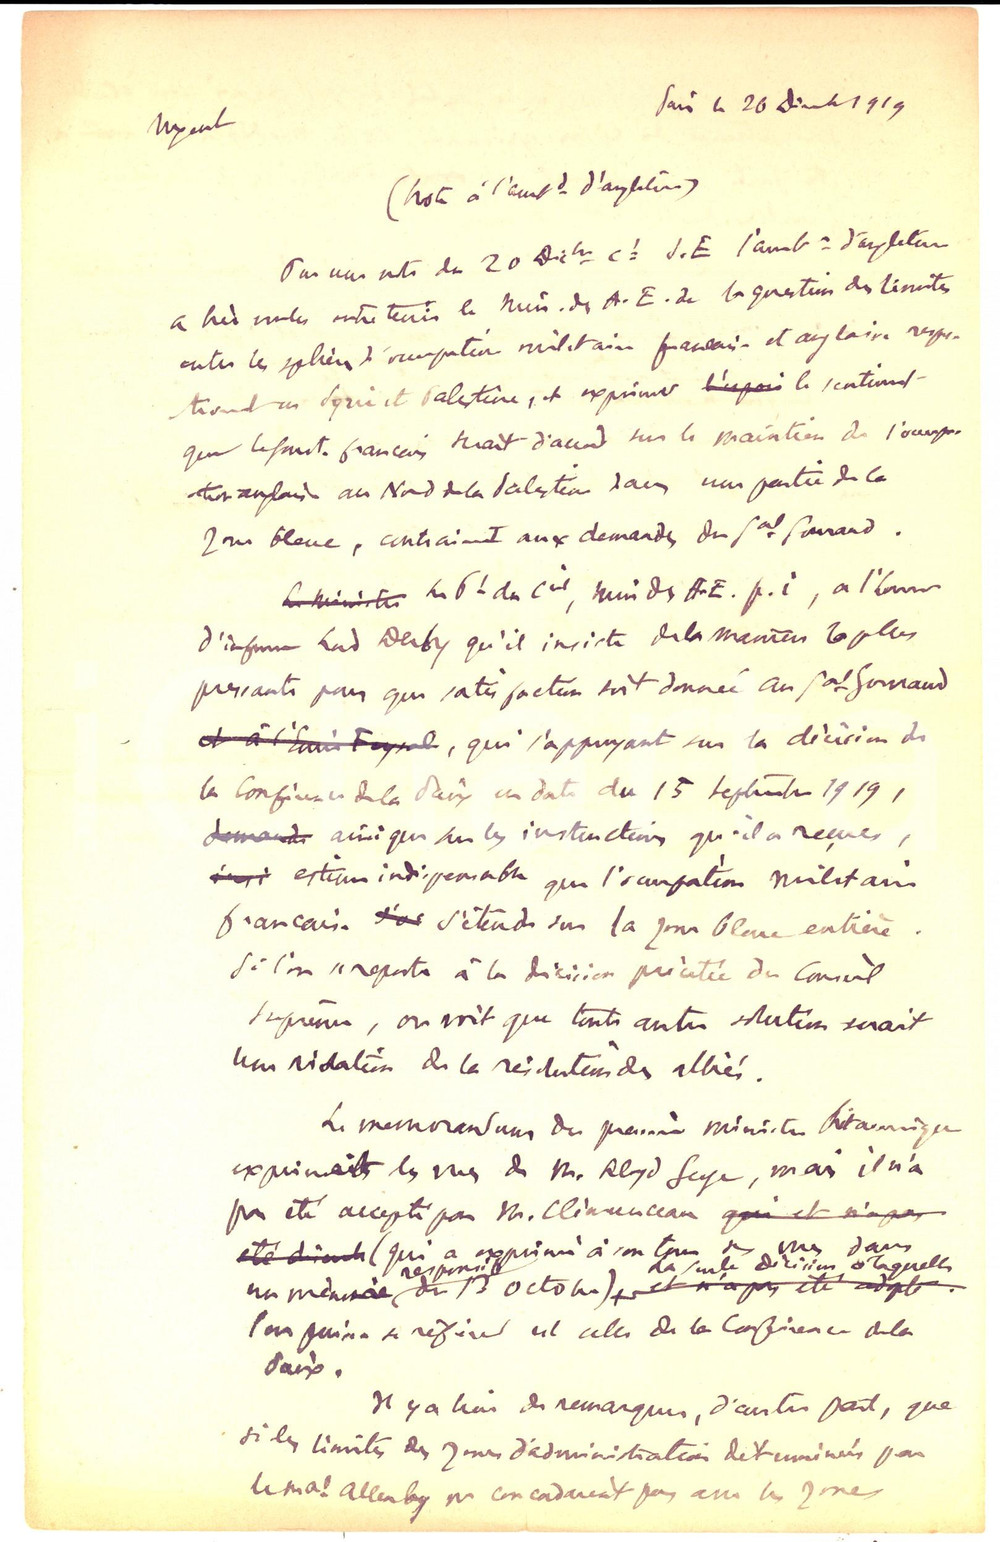 Urgent
Paris le 26 Décembre 1919
(Note à l'ambde d'Angleterre)
Par une note du 20 Décbre ct S.E. l'ambr d'Angleterre
a bien voulu entretenir le Min. des A.E. de la question des limites
entre les sphères d'occupation militaire française et anglaise respec-
tivement en Syrie et Palestine, et exprimer l'espoir le sentiment
que le Gouvt français serait d'accord sur le maintien de l'occupa-
tion anglaise au Nord de la Palestine dans une partie de la
zone bleue, contrairement aux demandes du Gal Gouraud.
Le Ministre Le Pt du Cil, Min des A.E. p.i, a l'honneur
d'informer Lord Derby qu'il insiste de la manière la plus
pressante pour que satisfaction soit donnée au Gal Gouraud
et à l'Emir Feysal, qui s'appuyant sur la décision de
la Conférence de la Paix en date du 15 septembre 1919,
demande ainsi que sur les instructions qu'il a reçues,
estime indispensable que l'occupation militaire
française s'étende sur la zone bleue entière.
Si l'on se reporte à la décision précitée du Conseil
Suprême, on voit que toute autre solution serait
une violation de la résolution des alliés.
Le memorandum du premier ministre britannique
exprimait les vues de M. Lloyd George, mais il n'a
pas été accepté par M. Clémenceau qui et n'a pas
été (qui a exprimé à son tour ses vues dans
responsif La seule décision à laquelle
une du 13 octobre), et n'a pas été adopté.
l'on puisse se référer est celle de la Conférence de la
Paix.
Il y a lieu de remarquer, d'autre part, que
si les limites des zones d'administration déterminées par
le Mal Allenby ne concordaient pas avec les zones